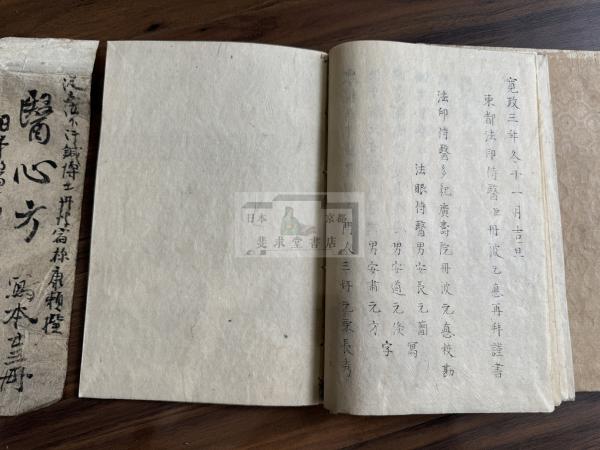 寛政三年冬十一月吉旦
東都法印侍醫臣丹波元悳再拜謹書
法印侍醫多紀廣壽院丹波元悳校勘
法眼侍醫男安長元簡
寫
男安道元
字
男安肅元方
門人三好元策長孝
從五位下行鍼博士丹波宿祢康頼撰
醫心方
寫本廿三冊
日本
京都
斐求堂書店